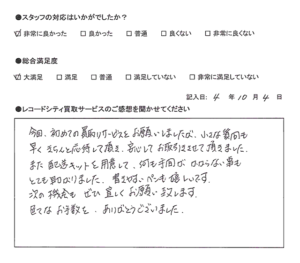 ●スタッフの対応はいかがでしたか？
☑ 非常に良かった □ 良かった □ 普通 □ 良くない □ 非常に良くない
●総合満足度
☑ 大満足 □ 満足 □ 普通 □ 満足していない □ 非常に満足していない
記入日： 4 年 10 月 4 日
●レコードシティ買取サービスのご感想を聞かせてください
今回、初めての買取サービスをお願いしましたが、小さな質問も
早くきちんと応対して頂き、安心してお取引させて頂きました。
また配送キットを用意して、何も手間がかからない事も
とても助かりました。書きやすいペンも嬉しいです。
次の機会も ぜひ 宜しくお願い致します。
お手数を、ありがとうございました。